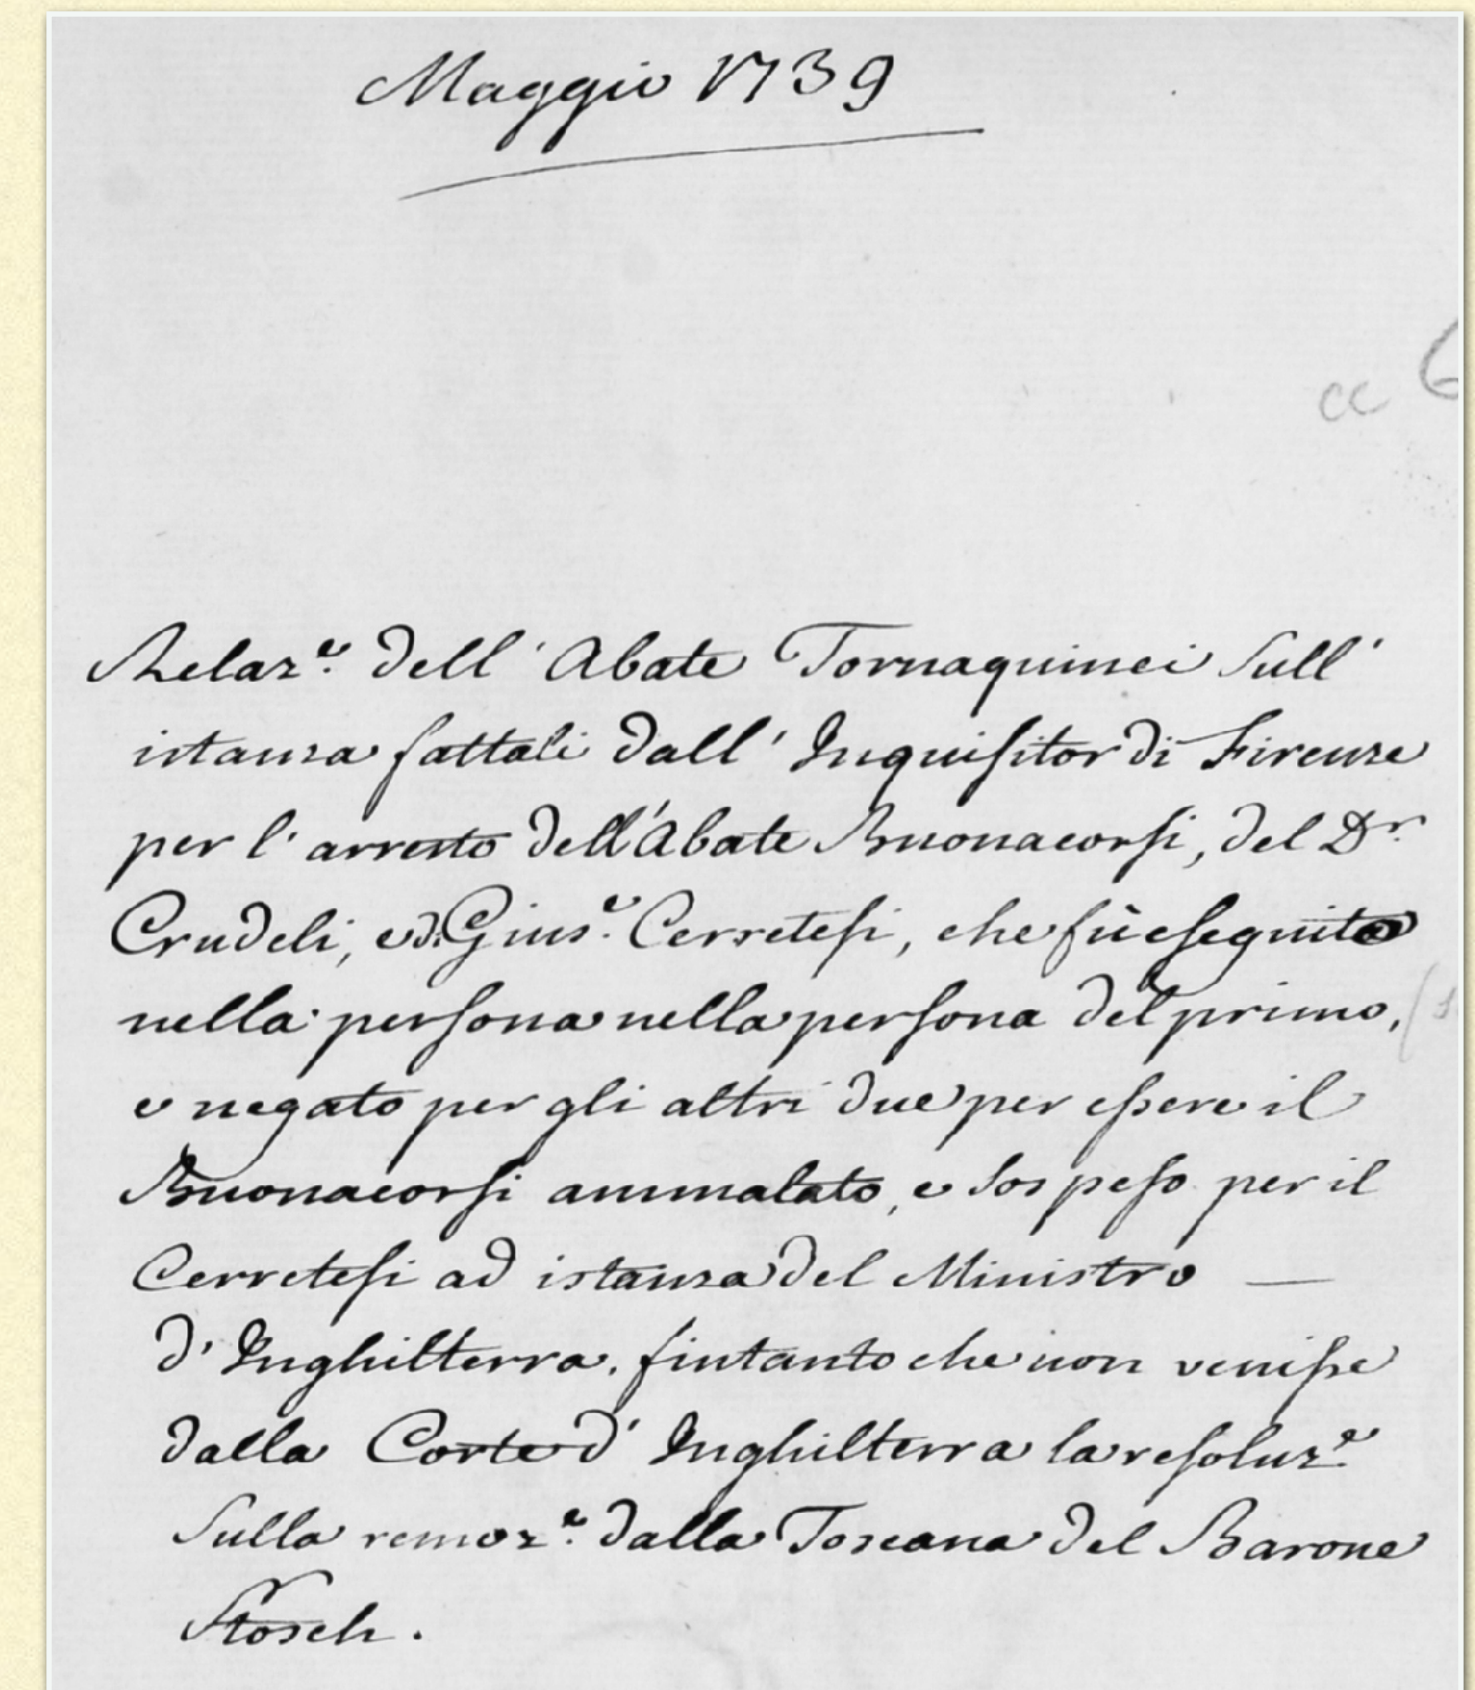 Maggio 1739
cc 6
Relaz.e dell' Abate Tornaquinci sull'
istanza fattali dall' Inquisitor di Firenze
per l' arresto dell'Abate Buonacorsi, del Dr.
Crudeli, e di Gius.e Cerretesi, che fù eseguito
nella persona nella persona del primo,
e negato per gli altri due per essere il
Buonacorsi ammalato, e sospeso per il
Cerretesi ad istanza del Ministro —
d' Inghilterra, fintanto che non venisse
dalla Corte d' Inghilterra la resoluz.e
sulla remoz.e dalla Toscana del Barone
Stosch.